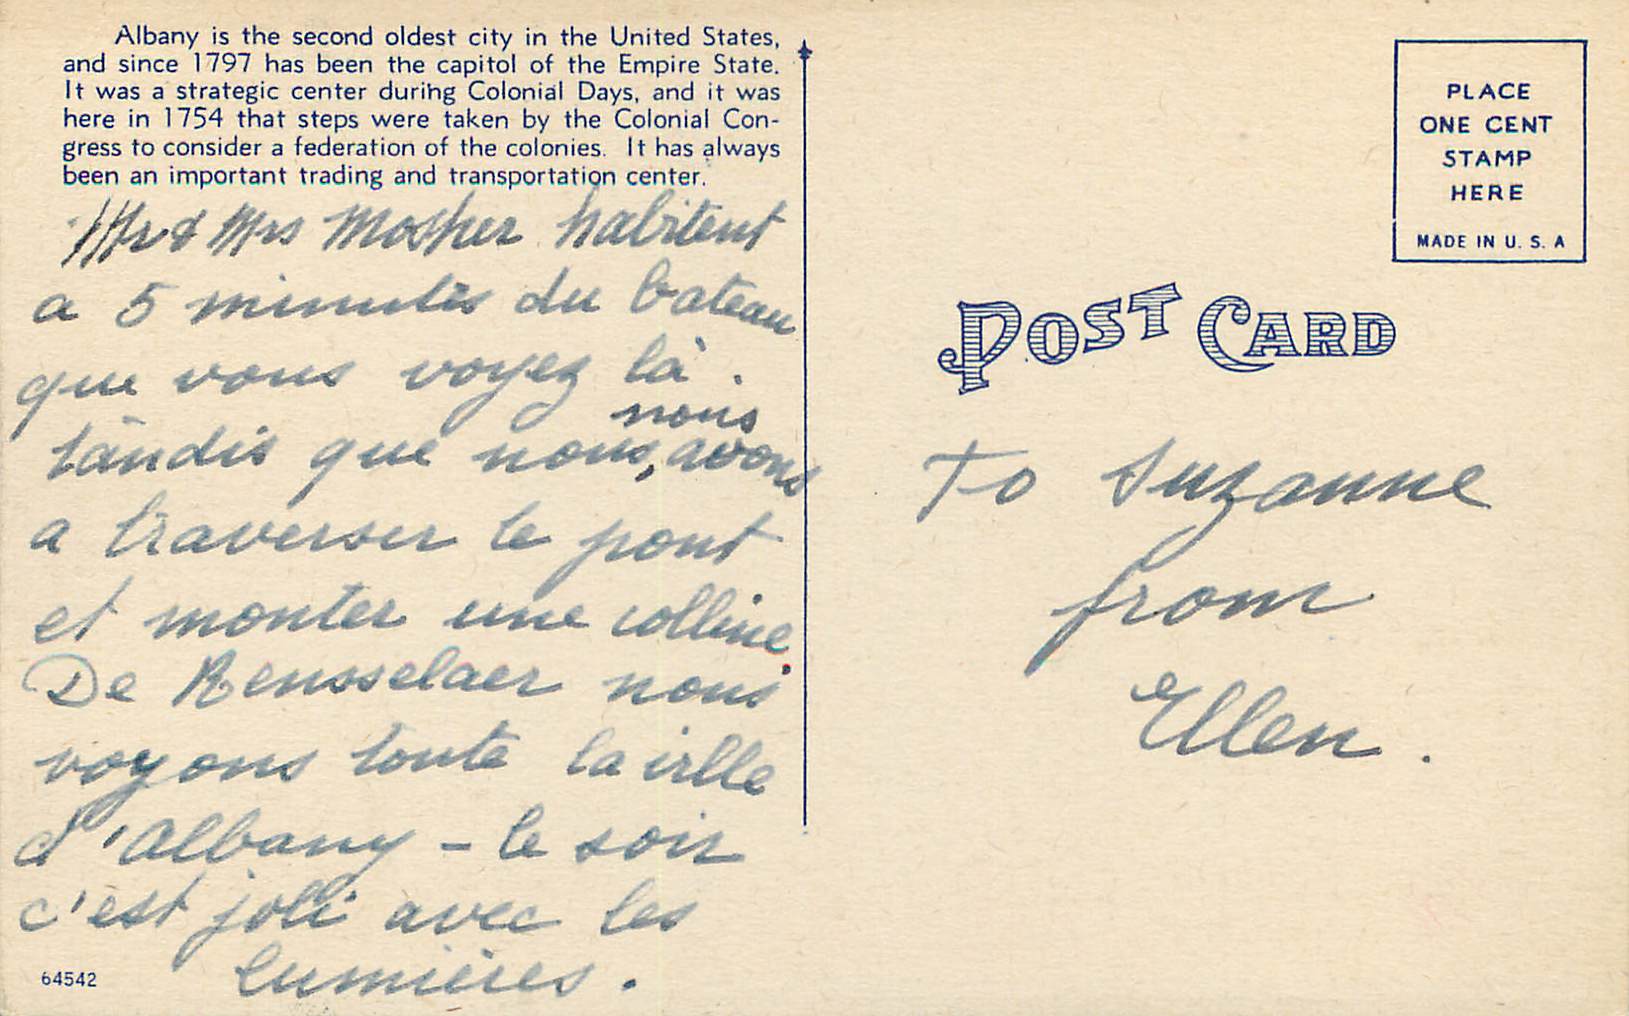 Albany is the second oldest city in the United States,
and since 1797 has been the capitol of the Empire State.
It was a strategic center during Colonial Days, and it was
here in 1754 that steps were taken by the Colonial Con-
gress to consider a federation of the colonies. It has always
been an important trading and transportation center.
Mr & Mrs Mosher habitent
a 5 minutes du bateau
que vous voyez là.
tandis que nous, nous avons
a traverser le pont
et monter une colline.
De Rensselaer nous
voyons toute la ville
d'Albany - le soir
c'est joli avec les
lumières.
64542
PLACE
ONE CENT
STAMP
HERE
MADE IN U. S. A
POST CARD
To Suzanne
from
Ellen.